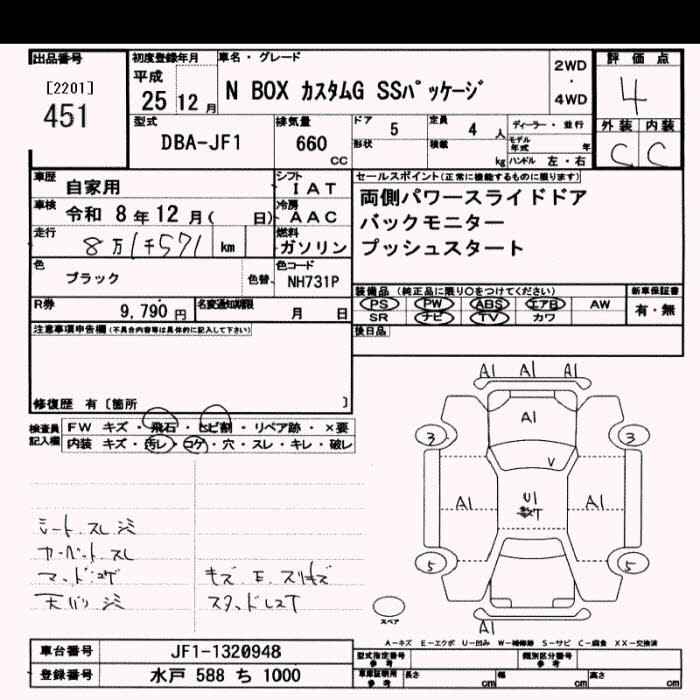 出品番号
[2201]
451
初度登録年月
平成
25 12 月
車名・グレード
N BOX カスタムG SSパッケージ
2WD
・
4WD
評価点
4
外装 内装
C C
型式
DBA-JF1
排気量
660
CC
ドア 5
定員 4 人
形状
積載 kg
ディーラー・並行
モデル年式 年
ハンドル 左・右
車歴 自家用
シフト
I A T
車検 令和 8 年 12 月( 日)
冷房
A A C
走行 8万1千571 km
燃料
ガソリン
色 ブラック 色替
色コード
NH731P
R券 9,790 円
名変通知期限 月 日
セールスポイント(正常に機能するものに限ります)
両側パワースライドドア
バックモニター
プッシュスタート
装備品(純正品に限り○をつけてください)
PS PW ABS エアB AW
SR ナビ TV カワ
新車保証書
有・無
後日品
注意事項申告欄(不具合内容等は具体的に記入して下さい)
修復歴 有〔箇所 〕
検査員記入欄
FW キズ・飛石・ヒビ割・リペア跡・×要
内装 キズ・汚レ・コゲ・穴・スレ・キレ・破レ
シート スレ シミ
カーペット スレ
マッドコゲ
天バリ シミ
キズ E スリキズ
スタッドレスT
A1 A1 A1
A1
3 3
V
A1 U1 A1
5 5
A1
スペア
A-キズ E-エクボ U-凹み W-補修跡 S-サビ C-腐食 XX-交換済
車台番号 JF1-1320948
登録番号 水戸 588 ち 1000
型式指定番号 参考
類別区分番号 参考
車庫証明用 参考
長さ cm
幅 cm
高さ cm